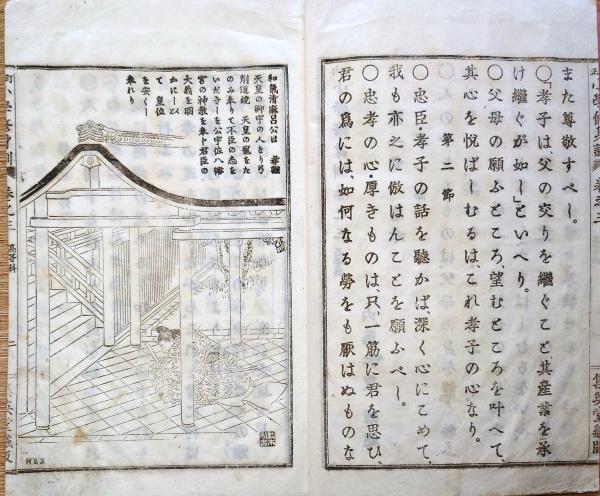 また尊敬すべし。
〇「孝子は、父の交りを繼ぐこと、其産業を承
け繼ぐが如し」といへり。
〇父母の願ふところ、望むところを叶へて、
其心を悦ばしむるは、これ孝子の心なり。
第二節
〇忠臣・孝子の話を聽かば、深く心にこめて、
我も亦之に倣はんことを願ふべし。
〇忠孝の心・厚きものは、只、一筋に君を思ひ、
君の爲には、如何なる勞をも厭はぬものな
和氣清麻呂公は
天皇の御宇の人なり弓
削道鏡 天皇の寵をた
のみ奉りて不臣の志を
いだきしを公宇佐八幡
宮の神教を奉ト君臣の
大義を明
かにして
皇位
を安くし
奉れり
高等科
二